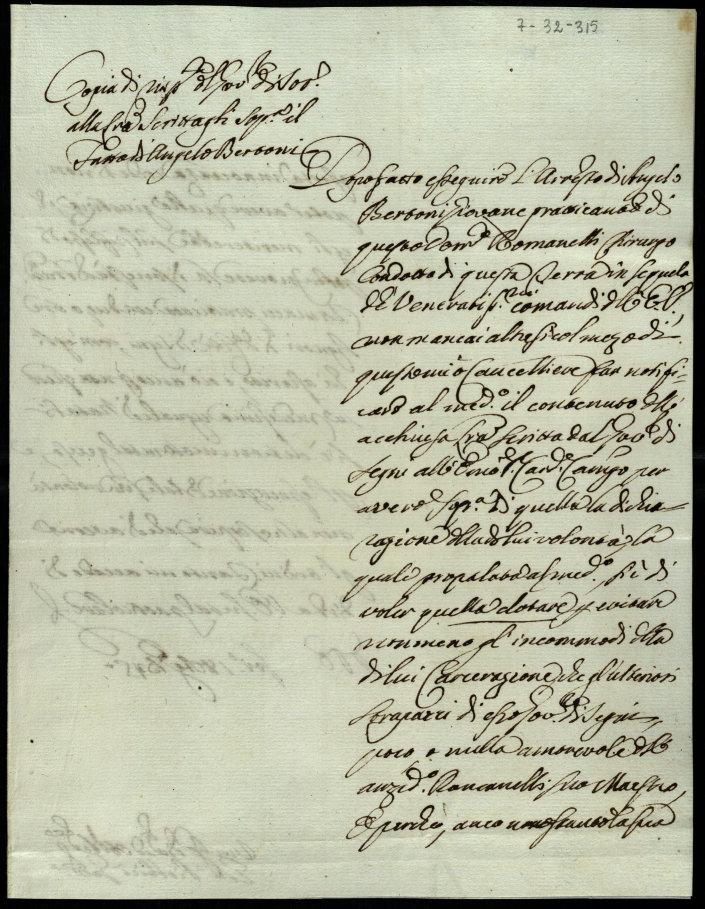 7-32-315
Copia di risp.
alla Scritta gli Sop.a il
Fatto di Angelo Bertoni
Dopo fatto esseguire l'Arresto di Angelo
Bertoni Giovane praticante di
questo Dom.o Romanelli Chirurgo
Condotto di questa Terra in sequela
de Venerati.ss. comandi dell' E. V.
non mancai altresi col mezo di
questo mio Cancelliere far notifi-
care al med.o il contenuto dell'
acchiusa Scritta dal Gov.re di
Segni all' Emo Card. per
avere sop.a di quella la dichia-
ragione della di lui volontà, la
quale propalata al med.o si è di
voler quella dotare, e evitare
nonmeno gl' incommodi della
di lui Carceragione, che gl' ulteriori
strapazzi di esso Gov.re di Segni
poco o nulla amorevole dell'
anzid.o Romanelli suo Maestro,
e perche, anco la sua